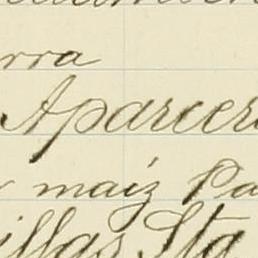 rra
Aparcer
maiz Pa
illas Sta